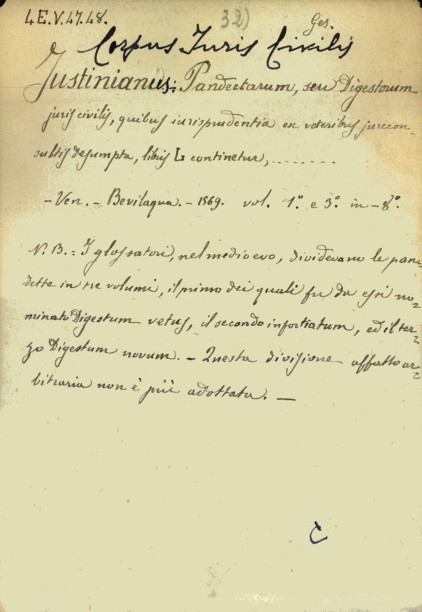 4.E.V.47.48.
32)
Ges.
Corpus Iuris Civilis
Justinianus; Pandectarum, seu Digestorum
juris civilis, quibus iurisprudentia ex veteribus jurecon-
sultis desumpta, libris L continetur, .......
- Ven. - Bevilaqua. - 1569. vol. 1.° e 3.° in - 8.°
N. B. = I glossatori, nel medio evo, dividevano le pan-
dette in tre volumi, il primo dei quali fu da essi no-
minato Digestum vetus, il secondo infortiatum, ed il ter-
zo Digestum novum. - Questa divisione affatto ar-
bitraria non è più adottata. -
C